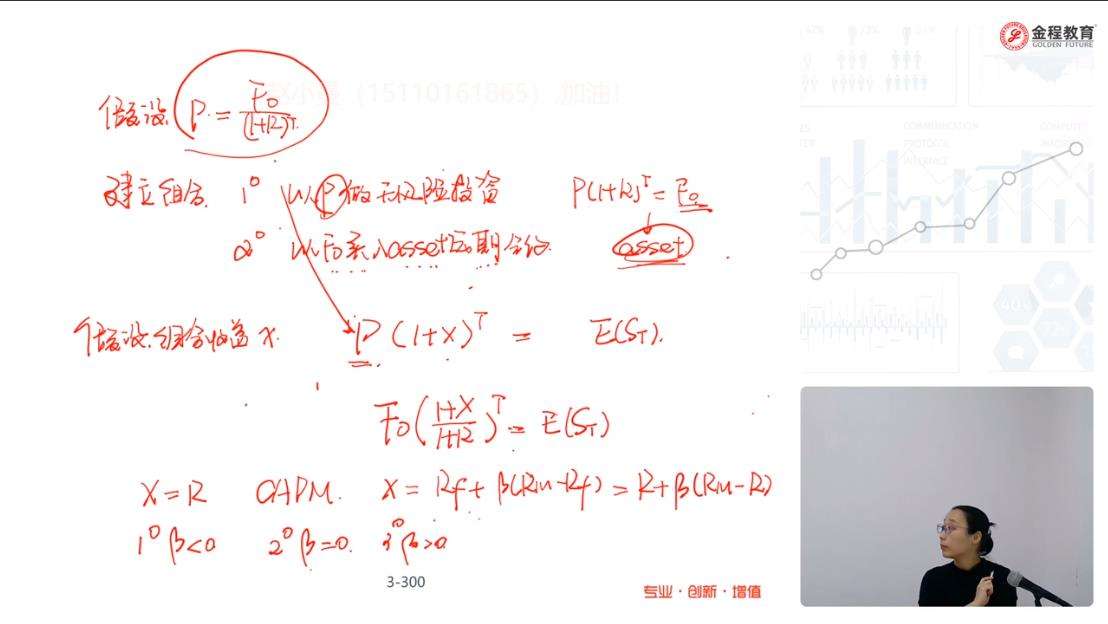 金程教育
GOLDEN FUTURE
(15110161865),加油!
假设 P = F0/(1+R)^T
建立组合 1° 以P做无风险投资 P(1+R)^T = F0
2° 以F0买入asset远期合约 asset
假设组合收益x P(1+X)^T = E(ST).
F0((1+X)/(1+R))^T = E(ST)
X=R CAPM. X = Rf + β(RM-Rf) = R+β(RM-R)
1° β<0 2° β=0. 3° β>0
3-300
专业·创新·增值